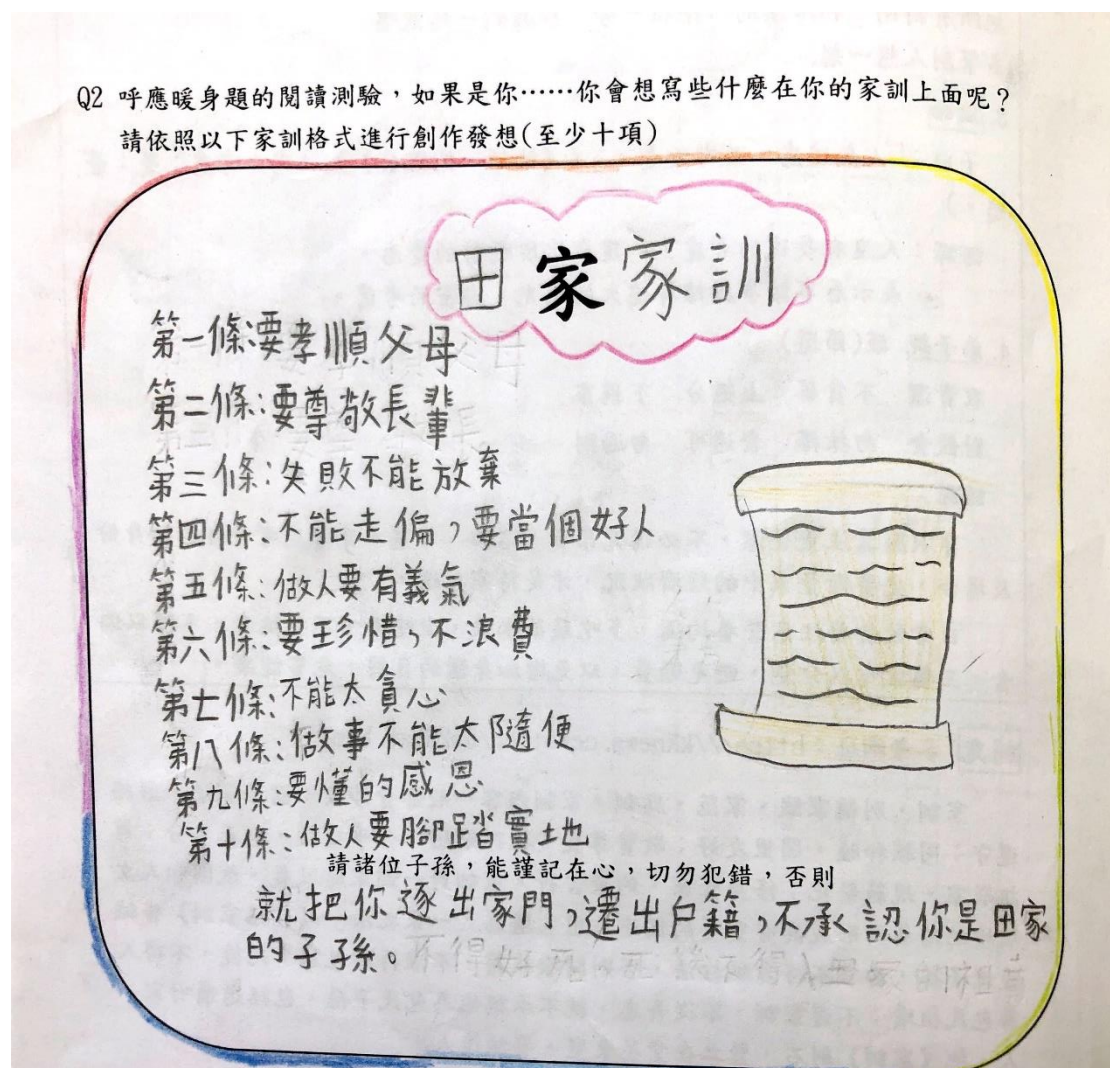 Q2 呼應暖身題的閱讀測驗，如果是你……你會想寫些什麼在你的家訓上面呢？
請依照以下家訓格式進行創作發想(至少十項)
田家家訓
第一條:要孝順父母
第二條:要尊敬長輩
第三條:失敗不能放棄
第四條:不能走偏，要當個好人
第五條:做人要有義氣
第六條:要珍惜，不浪費
第七條:不能太貪心
第八條:做事不能太隨便
第九條:要懂的感恩
第十條:做人要腳踏實地
請諸位子孫，能謹記在心，切勿犯錯，否則
就把你逐出家門，遷出户籍，不承認你是田家
的子孫。